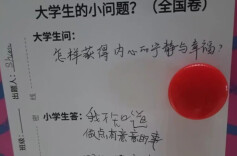 大学生的小问题？（全国卷）
大学生问：
怎样获得内心的宁静与幸福？
小学生答：
我不知道
做点有意义的事
出题人：
班级：
密
线